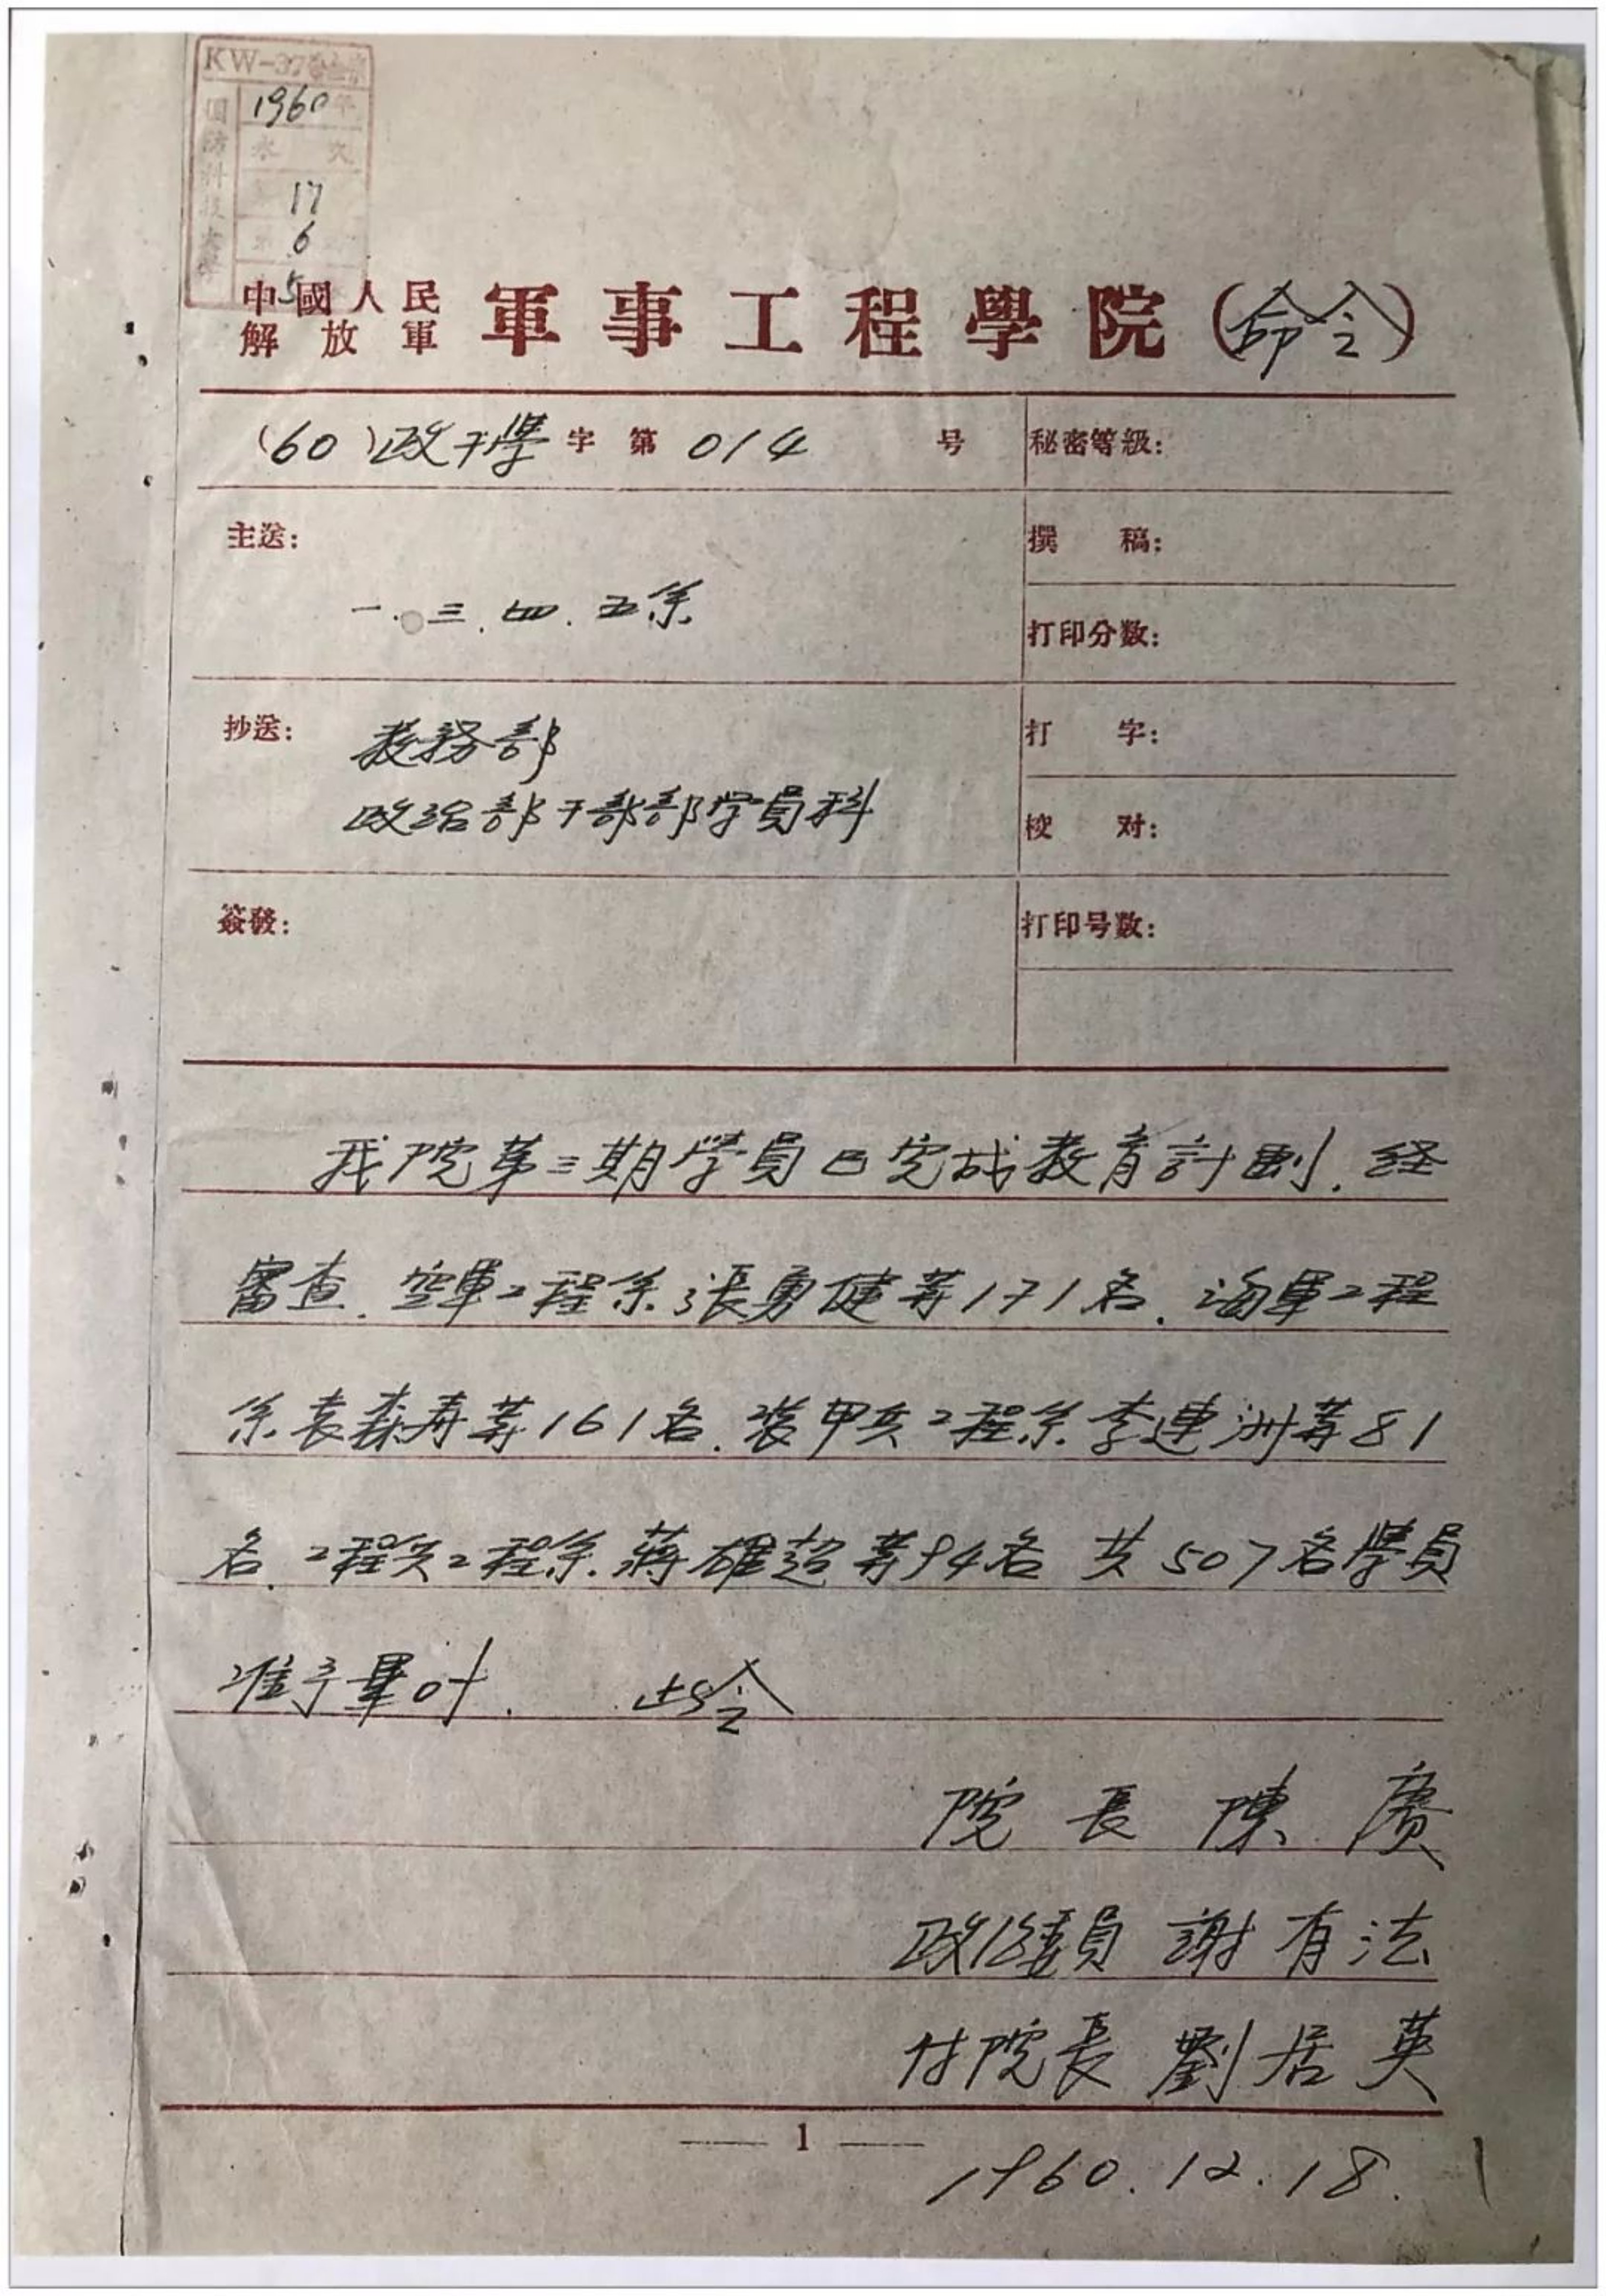 KW-37
1960年
永久
国防科技大学
17
6
5
中國人民
解放軍
軍事工程學院(命令)
(60)政干學字第014号
秘密等級:
主送:
一.三.四.五系
撰稿:
打印分数:
抄送:
教務部
政治部干部部学員科
打字:
校对:
簽發:
打印号数:
我院第三期學員已完成教育計劃.经
審查.空軍工程系張勇健等171名.海軍工程
系袁森寿等161名.装甲兵工程系李連洲等81
名.工程兵工程系.蔣雄超等94名共507名學員
准予畢叶.此令
院長陳賡
政治委員謝有法
付院長劉居英
— 1 —
1960.12.18.